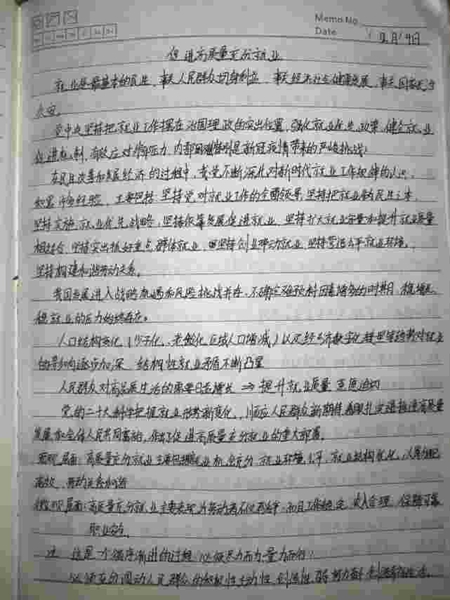 Memo No.
Date 9月19日
促进高质量充分就业
就业是最基本的民生,事关人民群众切身利益,事关经济社会健康发展,事关国家长治
久安。
党中央坚持把就业工作摆在治国理政的突出位置,强化就业优先政策,健全就业
促进机制,有效应对 压力,内部 是新冠疫情带来的严峻挑战!
在民生改善和发展经济的过程中,我党不断深化对新时代就业工作规律的认识,
积累 经验,主要包括:坚持党对就业工作的全面领导,坚持把就业 民生之本,
坚持实施就业优先战略,坚持依靠发展促进就业,坚持扩大就业容量和提升就业质量
相结合,坚持突出抓好重点群体就业,坚持创业带动就业,坚持营造公平就业环境,
坚持构建和谐劳动关系。
我国发展进入战略机遇和风险挑战并存、不确定难预料因素增多的时期,稳增长
稳就业的压力始终存在。
人口结构变化(少子化、老龄化、区域人口增减)以及经济数字化转型等趋势对就业
的影响逐步加深,结构性就业矛盾不断凸显
人民群众对高品质生活的需要日益增长 ⇒ 提升就业质量 更急迫切
党的二十大科学把握就业形势新变化,顺应人民群众新期待,着眼扎实推进高质量
发展和全体人民共同富裕,作出了促进高质量充分就业的重大部署。
宏观层面:高质量充分就业主要包括就业机会充分、就业环境公平、就业结构优化、人岗匹配
高效、劳动关系和谐
微观层面:高质量充分就业主要表现为劳动者不仅有活干,而且工作稳定、收入合理、保障可靠
职业安全。
注 这是个循序渐进的过程,必须尽力而为量力而行;
必须充分调动人民群众的积极性主动性 创造性,